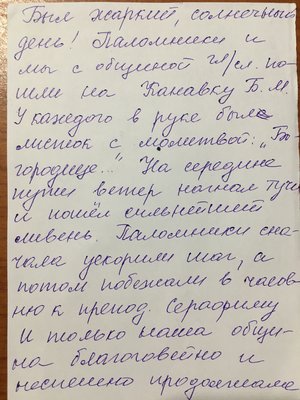 Был жаркий, солнечный
день! Паломники и
мы с общиной гл/сл. по-
шли на Канавку Б.М.
У каждого в руке был
листок с молитвой: „Бо
городице..." На середине
пути ветер нагнал тучи
и пошёл сильнейший
ливень. Паломники сна-
чала ускорили шаг, а
потом побежали в часов-
ню к препод. Серафиму
И только наша общи-
на благоговейно и
неспешно продолжала